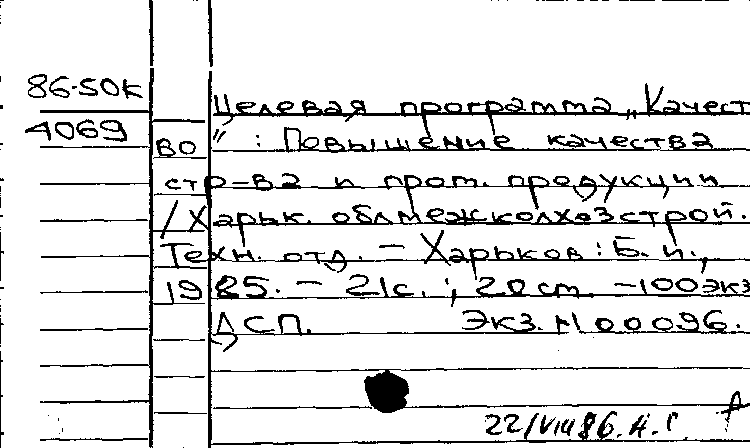 86-50К
4069
Целевая программа „Качест
во“: Повышение качества
стр-ва и пром. продукции
/Харьк. облмежколхозстрой.
Техн. отд. – Харьков: Б. и.,
1985. – 21с.; 20см. –100экз
ДСП. Экз. N 00096.
22/VIII86. Н. Г.